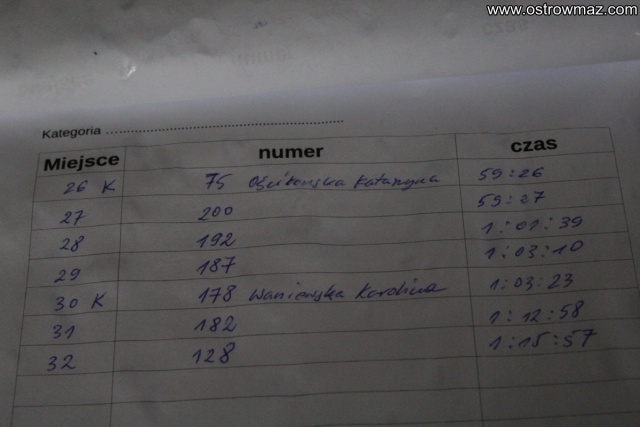 www.ostrowmaz.com
Kategoria ..........................................................
Miejsce numer czas
26 K 75 Katarzyna 59:26
27 200 59:27
28 192 1:01:39
29 187 1:03:10
30 K 178 Waniewska Karolina 1:03:23
31 182 1:12:58
32 128 1:15:57